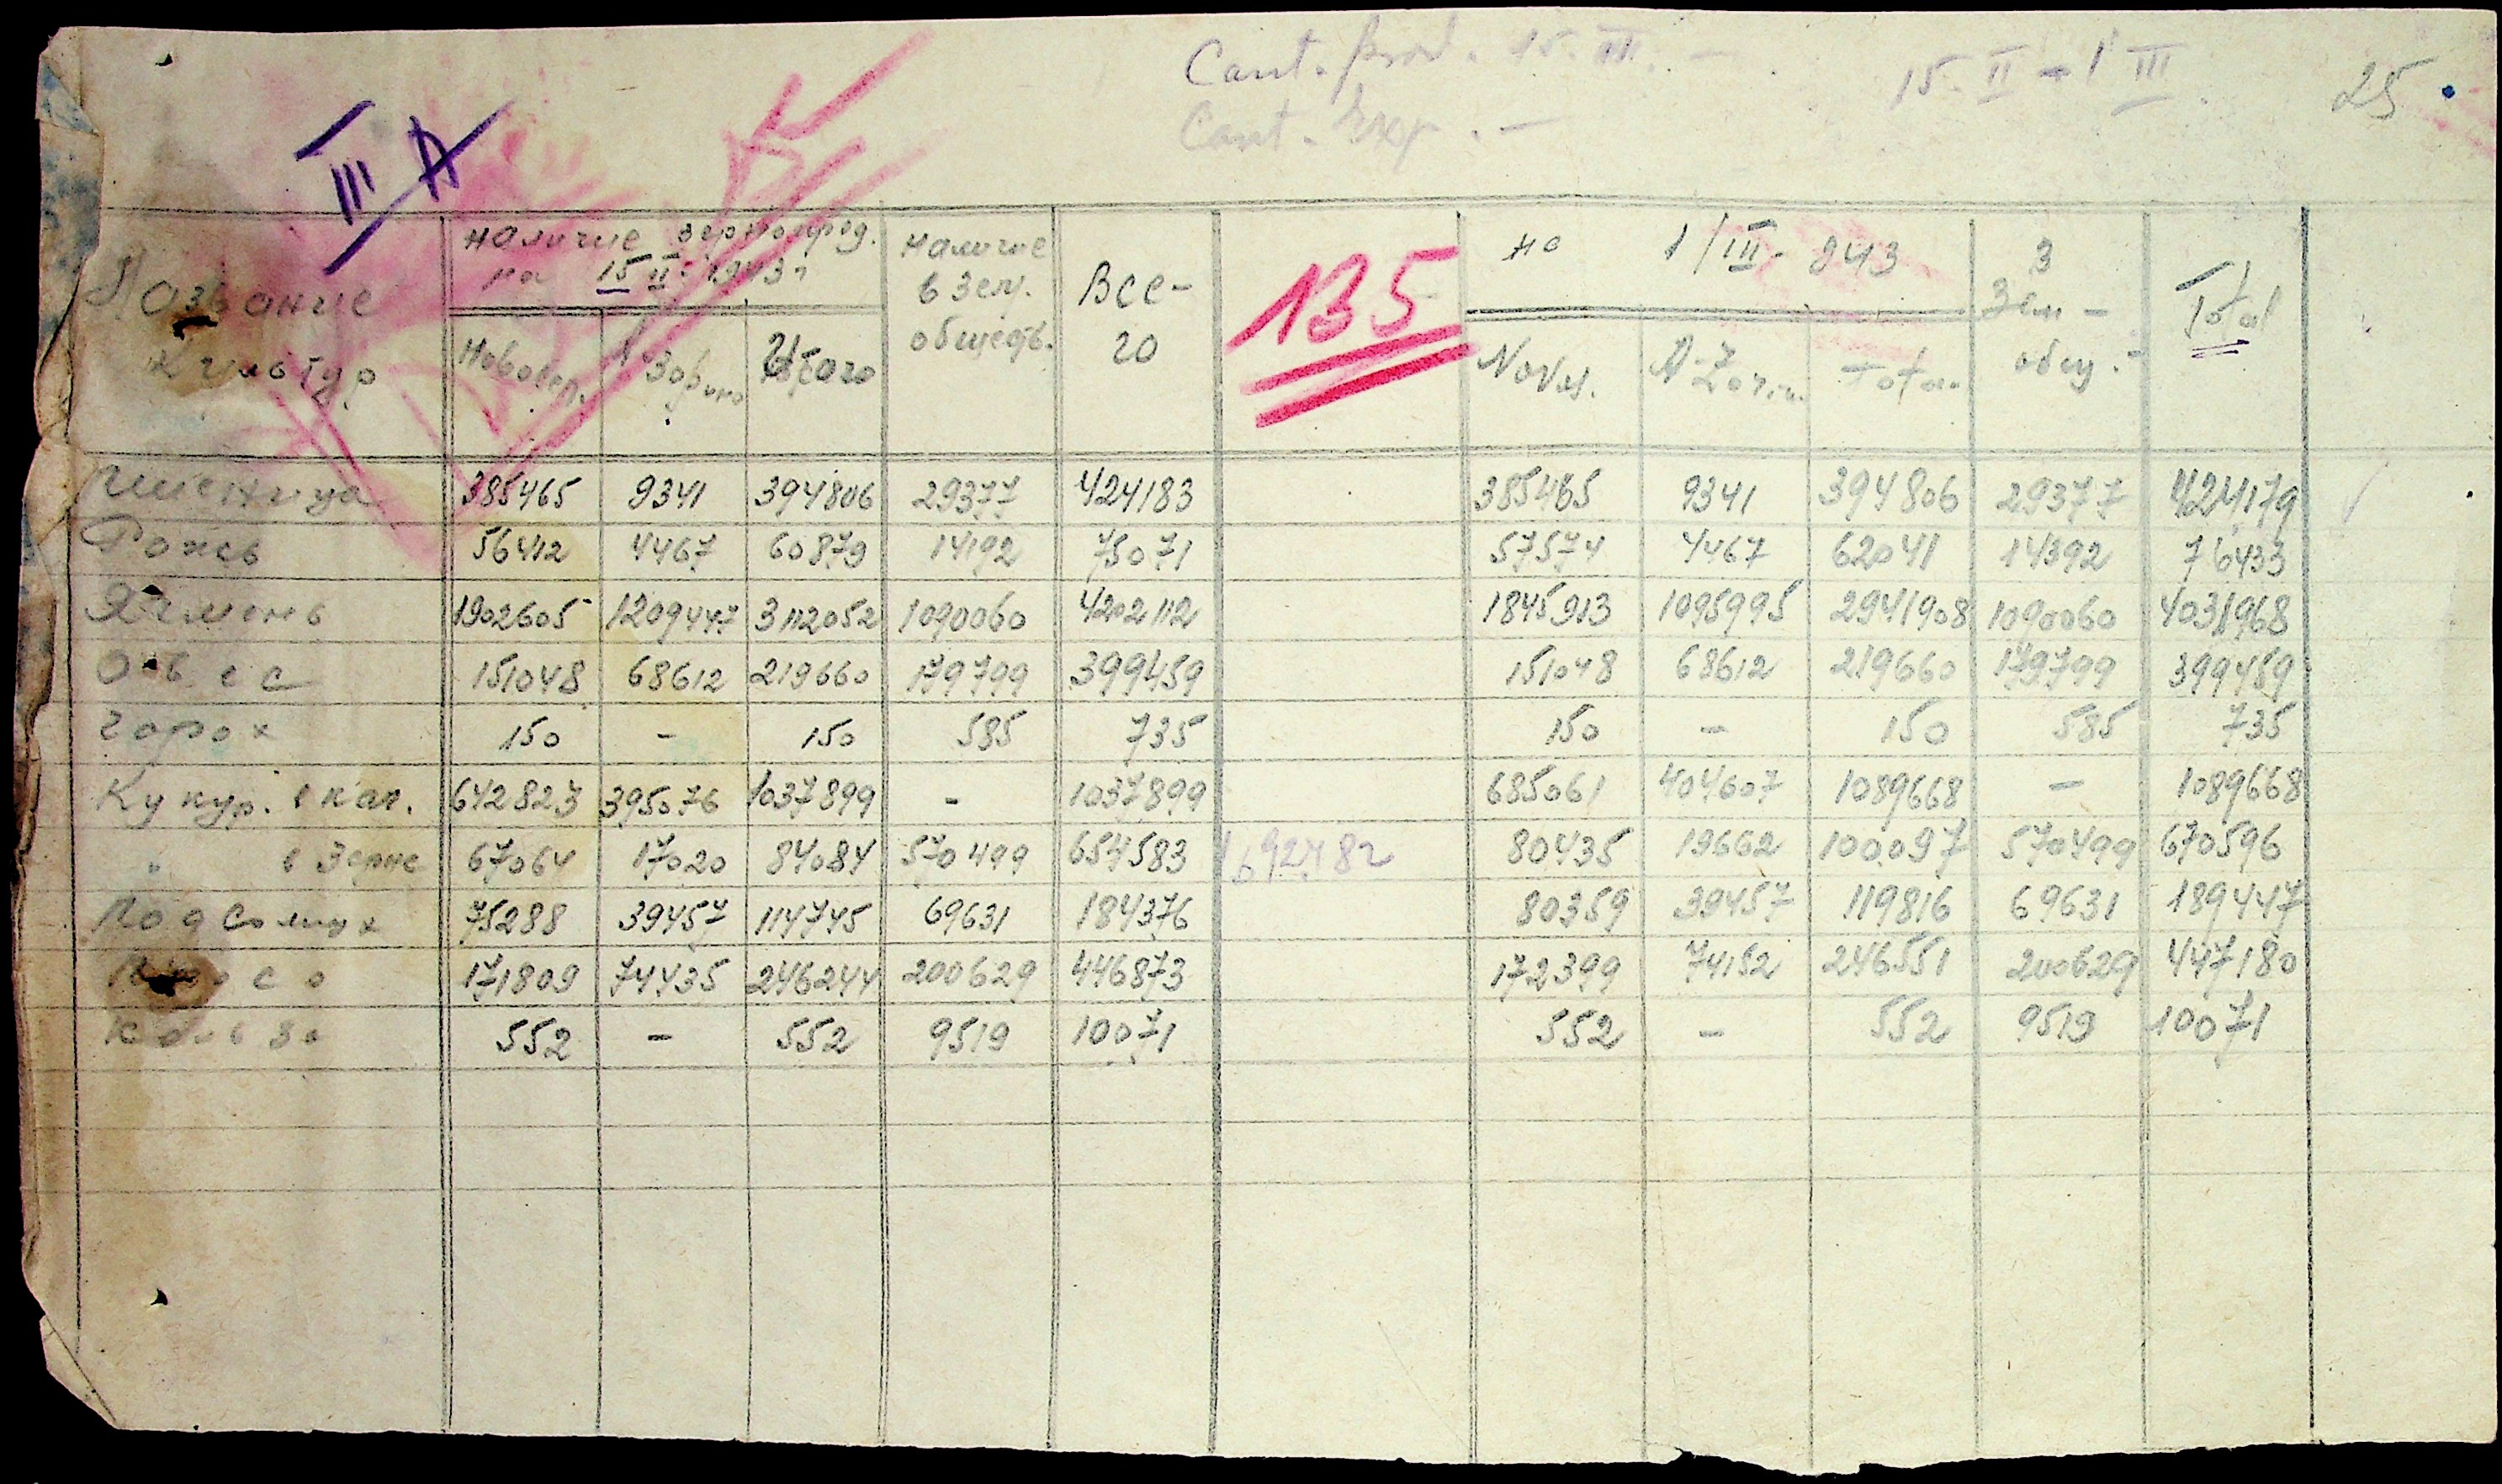 Cant. prod. 15. III. —
15. II – 1 III
25
Cant. Exp. —
III A
135
Название культур
наличие зернопрод. на 15 II 1943 г
Наличие в зем. обществ.
Все-го
на 1/III - 943
З Зем - общ. -
Total
Новоукр. А Зорино Итого
Novou. A-Zorin. Total
Пшеница 385465 9341 394806 29377 424183 385465 9341 394806 29377 424179
Рожь 56412 4467 60879 14192 75071 57574 4467 62041 14392 76433
Ячмень 1902605 1209447 3112052 1090060 4202112 1845913 1095995 2941908 1090060 4031968
Овес 151048 68612 219660 179799 399459 151048 68612 219660 179799 399459
Горох 150 – 150 585 735 150 – 150 585 735
Кукур. в кач. 642823 395076 1037899 – 1037899 685061 404607 1089668 – 1089668
" в Зерне 67064 17020 84084 570499 654583 1692482 80435 19662 100097 570499 670596
Подсолнух 75288 39457 114745 69631 184376 80359 39457 119816 69631 189447
Просо 171809 74435 246244 200629 446873 172399 74152 246551 200629 447180
Кольза 552 – 552 9519 10071 552 – 552 9519 10071